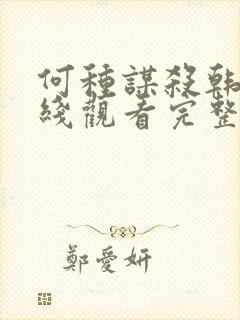 何種謀殺韩
綫觀看完整
鄭愛妍